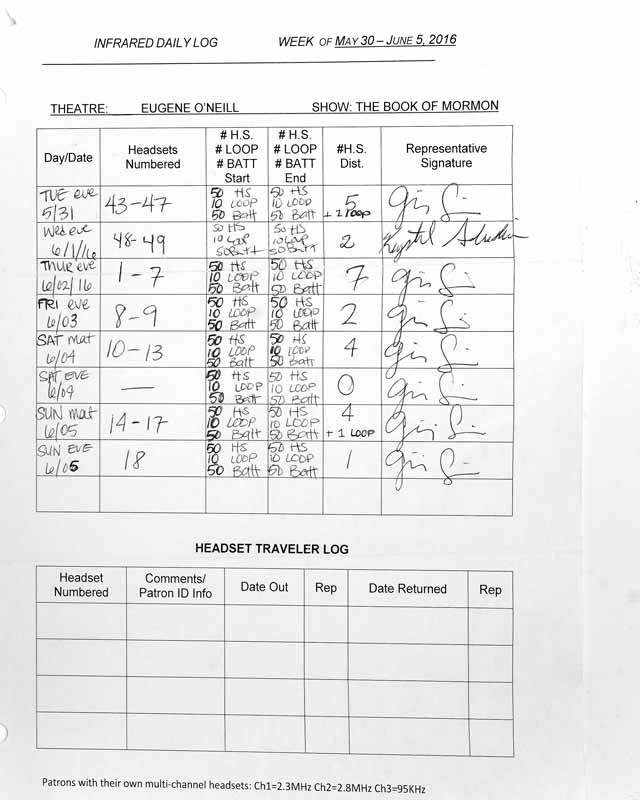 INFRARED DAILY LOG WEEK OF MAY 30 – JUNE 5, 2016
THEATRE: EUGENE O'NEILL SHOW: THE BOOK OF MORMON
Day/Date Headsets Numbered # H.S. # LOOP # BATT Start # H.S. # LOOP # BATT End #H.S. Dist. Representative Signature
TUE eve 5/31 43-47 50 HS 10 LOOP 50 Batt 50 HS 10 LOOP 50 Batt 5 + 1 LOOP
Wed eve 6/1/16 48-49 50 HS 10 Loop 50 Batt 50 HS 10 Loop 50 Batt 2 Krystal
THUR eve 6/02/16 1-7 50 HS 10 LOOP 50 Batt 50 HS 10 LOOP 50 Batt 7
FRI eve 6/03 8-9 50 HS 10 LOOP 50 Batt 50 HS 10 LOOP 50 Batt 2
SAT mat 6/04 10-13 50 HS 10 LOOP 50 Batt 50 HS 10 LOOP 50 Batt 4
SAT EVE 6/04 — 50 HS 10 LOOP 50 Batt 50 HS 10 LOOP 50 Batt 0
SUN mat 6/05 14-17 50 HS 10 LOOP 50 Batt 50 HS 10 LOOP 50 Batt 4 + 1 LOOP
SUN EVE 6/05 18 50 HS 10 LOOP 50 Batt 50 HS 10 LOOP 50 Batt 1
HEADSET TRAVELER LOG
Headset Numbered Comments/ Patron ID Info Date Out Rep Date Returned Rep
Patrons with their own multi-channel headsets: Ch1=2.3MHz Ch2=2.8MHz Ch3=95KHz